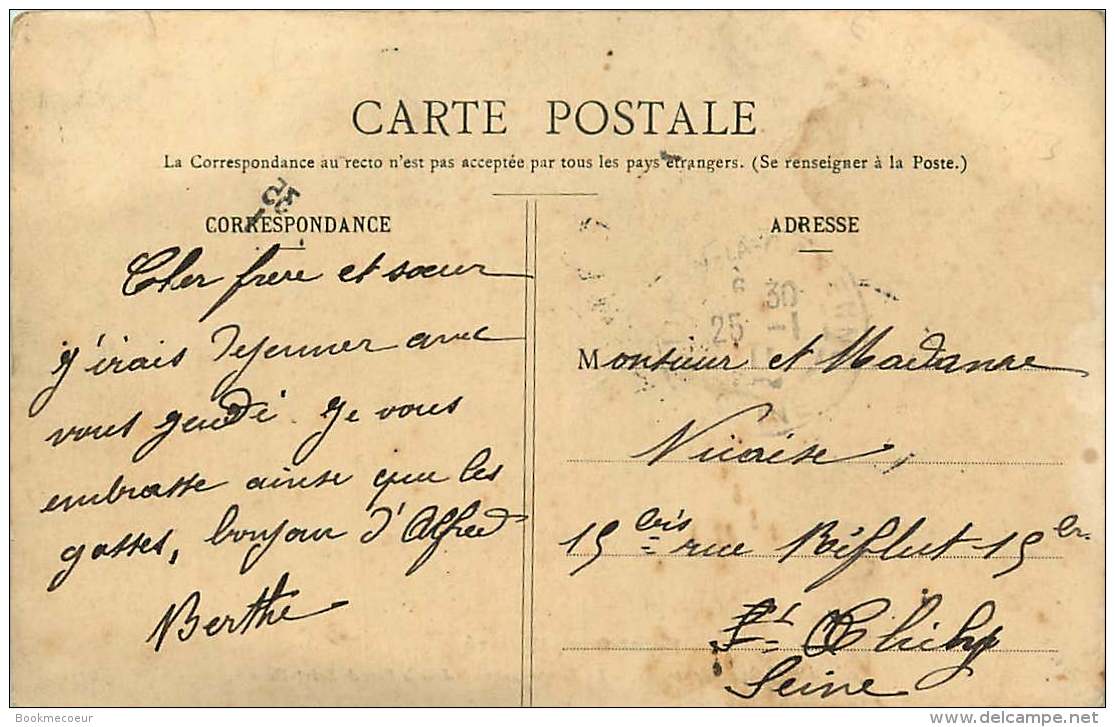 CARTE POSTALE
La Correspondance au recto n'est pas acceptée par tous les pays étrangers. (Se renseigner à la Poste.)
25
CORRESPONDANCE
Cher frere et sœur
j'irais dejeuner avec
vous jeudi je vous
embrasse ainse que les
gosses, bonjour d'Alfred
Berthe
ADRESSE
6 30
25 -1
Monsieur et Madame
Nicaise
15 bis rue 15 bis
Clichy
Seine
Bookmecoeur